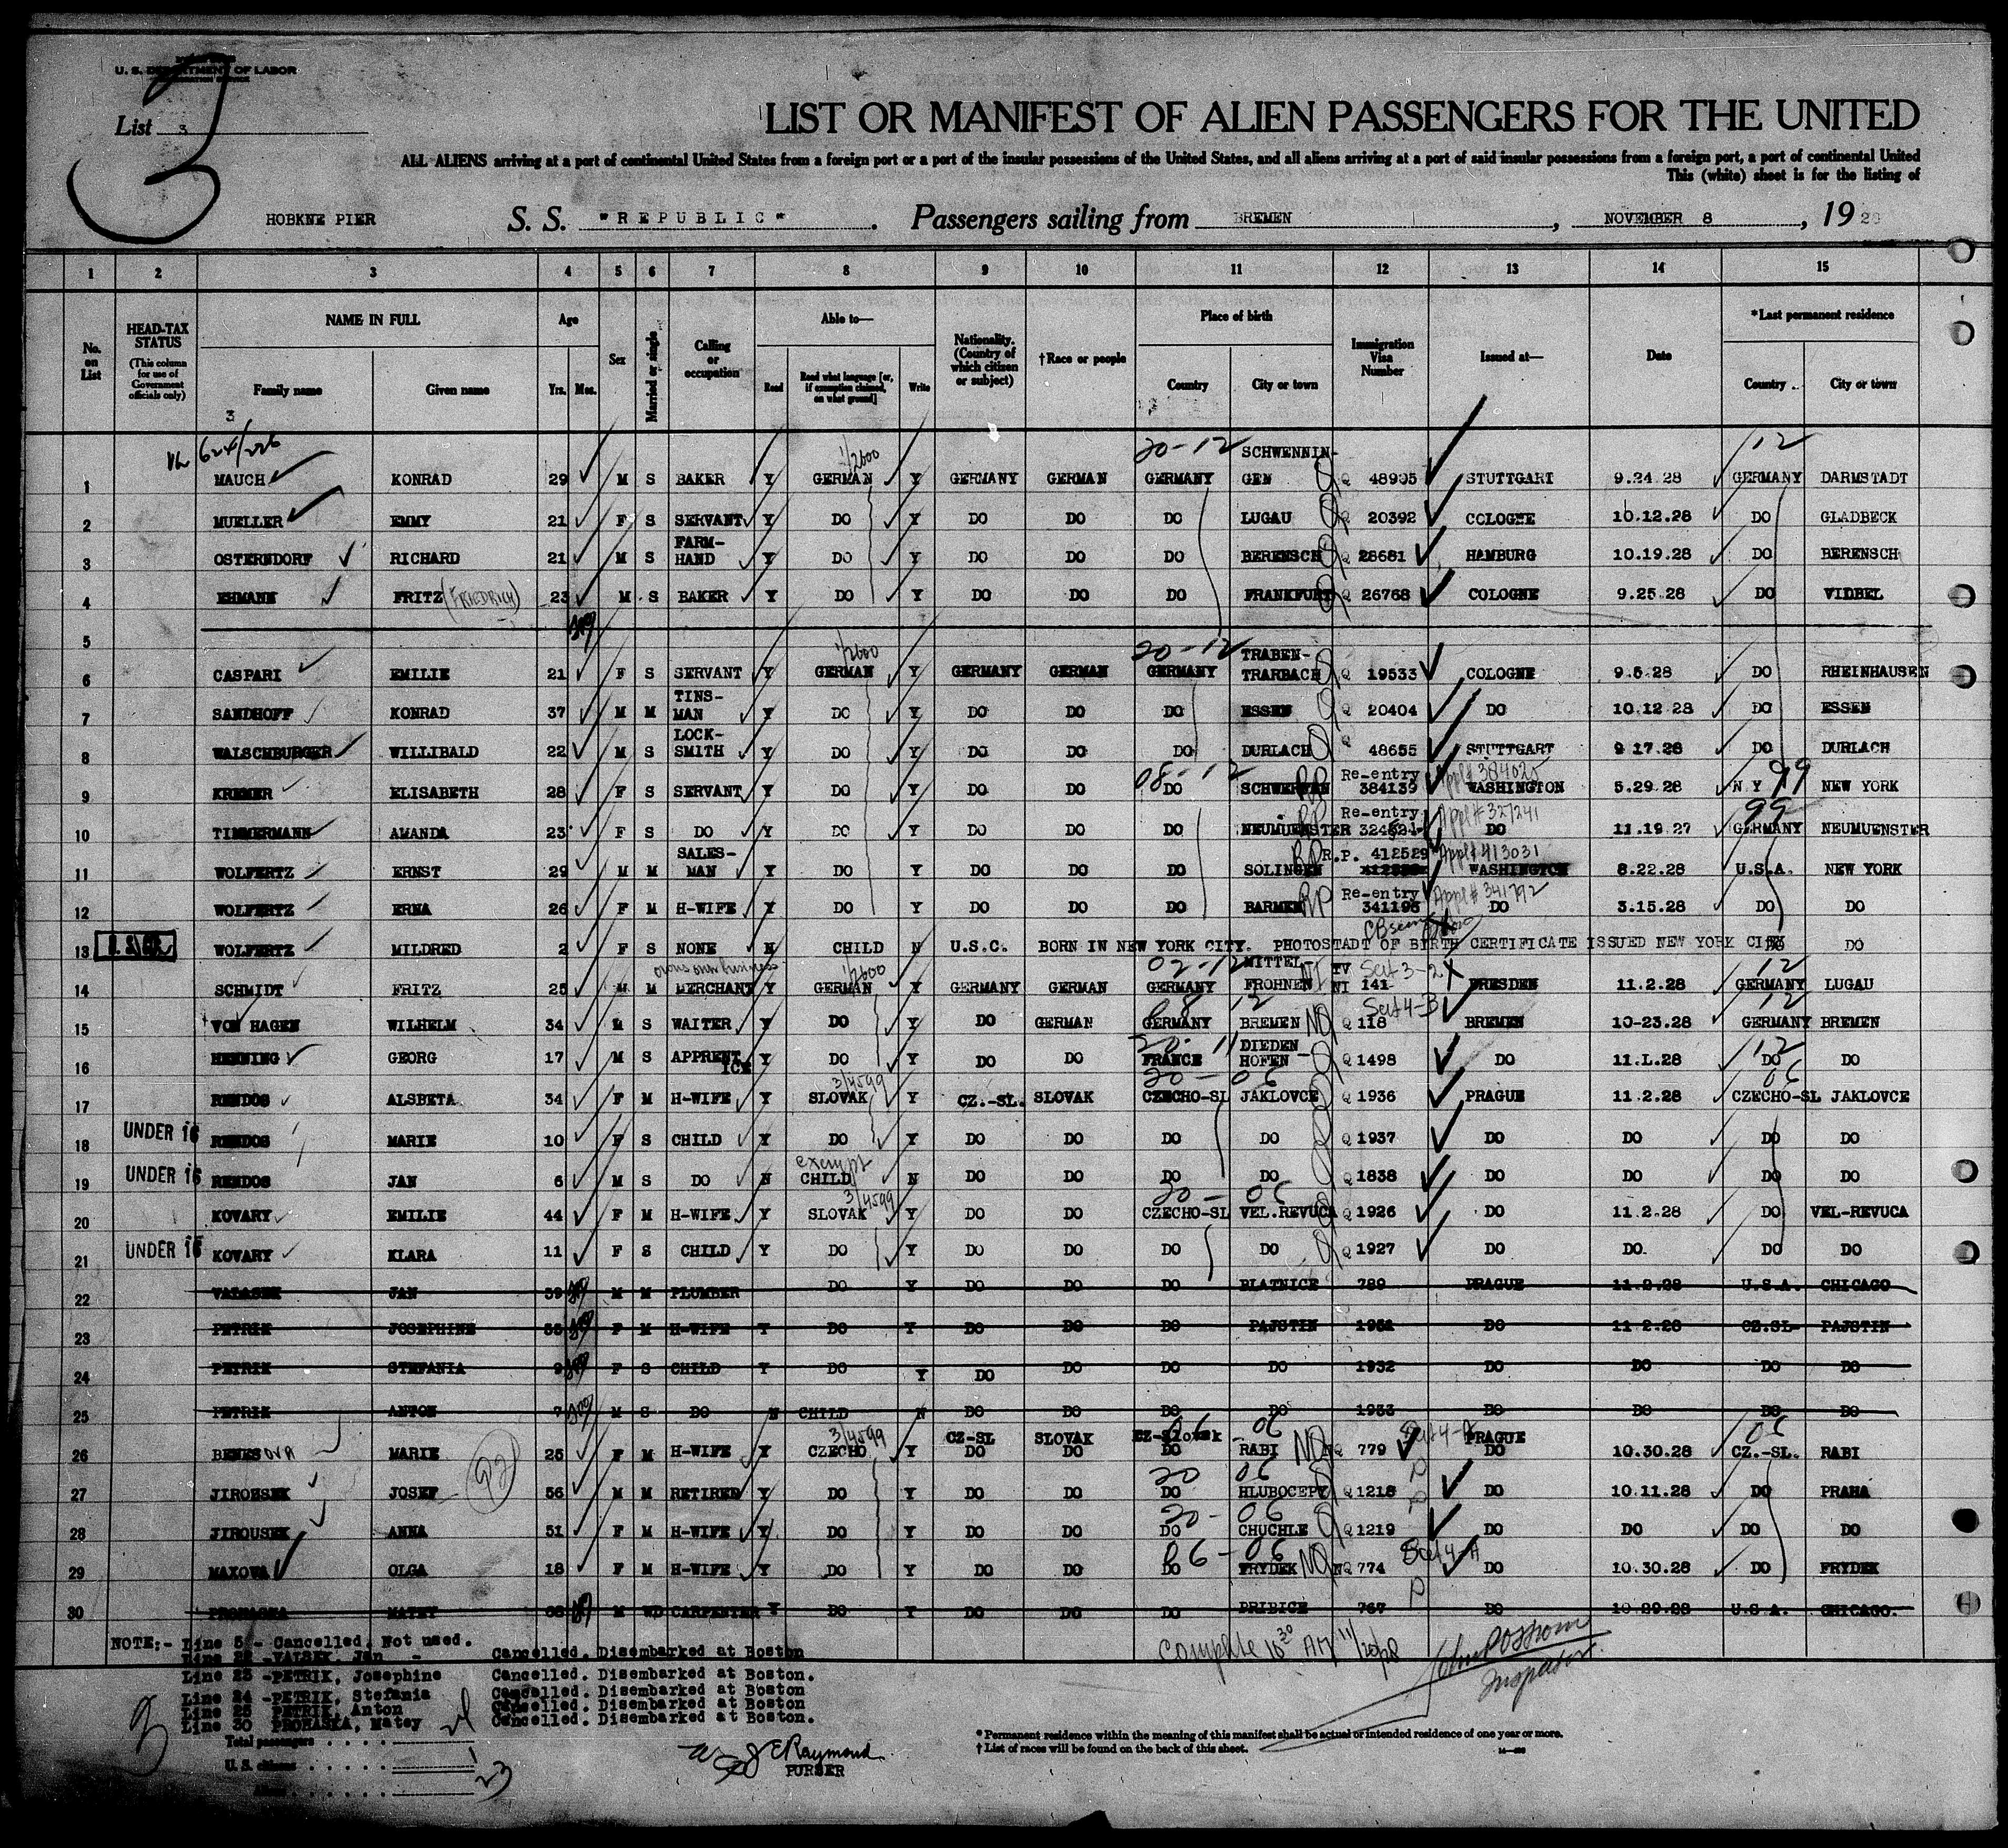 U. S. DEPARTMENT OF LABOR
List 3
3
LIST OR MANIFEST OF ALIEN PASSENGERS FOR THE UNITED
ALL ALIENS arriving at a port of continental United States from a foreign port or a port of the insular possessions of the United States, and all aliens arriving at a port of said insular possessions from a foreign port, a port of continental United
This (white) sheet is for the listing of
HOBKNE PIER S. S. "REPUBLIC" . Passengers sailing from BREMEN , NOVEMBER 8 , 19 28
1 2 3 4 5 6 7 8 9 10 11 12 13 14 15
No. on List
HEAD-TAX STATUS (This column for use of Government officials only)
NAME IN FULL Family name Given name
Age Yrs. Mos.
Sex
Married or single
Calling or occupation
Able to— Read Read what language [or, if exemption claimed, on what ground] Write
Nationality. (Country of which citizen or subject)
†Race or people
Place of birth Country City or town
Immigration Visa Number
Issued at—
Date
*Last permanent residence Country City or town
3
624/226 1/2600 20-12 12
1 MAUCH KONRAD 29 M S BAKER Y GERMAN Y GERMANY GERMAN GERMANY SCHWENNIN- GEN Q 48905 STUTTGART 9.24.28 GERMANY DARMSTADT
2 MUELLER EMMY 21 F S SERVANT Y DO Y DO DO DO LUGAU Q 20392 COLOGNE 10.12.28 DO GLADBECK
3 OSTERNDORF RICHARD 21 M S FARM- HAND Y DO Y DO DO DO BERENSCH Q 28681 HAMBURG 10.19.28 DO BERENSCH
4 EHMANN FRITZ (FRIEDRICH) 23 M S BAKER Y DO Y DO DO DO FRANKFURT Q 26768 COLOGNE 9.25.28 DO VIDBEL
5
1/2600 20-12
6 CASPARI EMILIE 21 F S SERVANT Y GERMAN Y GERMANY GERMAN GERMANY TRABEN- TRARBACH Q 19533 COLOGNE 9.5.28 DO RHEINHAUSEN
7 SANDHOFF KONRAD 37 M M TINS- MAN Y DO Y DO DO DO ESSEN Q 20404 DO 10.12.28 DO ESSEN
8 WALSCHBURGER WILLIBALD 22 M S LOCK- SMITH Y DO Y DO DO DO DURLACH Q 48655 STUTTGART 9.17.28 DO DURLACH
9 KREMER ELISABETH 28 F S SERVANT Y DO Y DO DO 08-12 DO SCHWERMAN RP Re-entry 384139 Appl# 384025 WASHINGTON 5.29.28 N.Y 99 NEW YORK
10 TIMMERMANN AMANDA 23 F S DO Y DO Y DO DO DO NEUMUENSTER RP Re-entry Appl# 327241 DO 11.19.27 99 GERMANY NEUMUENSTER
11 WOLFERTZ ERNST 29 M M SALES- MAN Y DO Y DO DO DO SOLINGEN RP R.P. 412529 Appl# 413031 WASHINGTON 8.22.28 U.S.A. NEW YORK
12 WOLFERTZ ERNA 26 F M H-WIFE Y DO Y DO DO DO BARMEN RP Re-entry 341193 Appl# 341792 DO 3.15.28 DO DO
13 WOLFERTZ MILDRED 2 F S NONE N CHILD N U.S.C. BORN IN NEW YORK CITY. PHOTOSTADT OF BIRTH CERTIFICATE ISSUED NEW YORK CITY DO DO
14 SCHMIDT FRITZ 25 M M owns own business MERCHANT Y 1/2600 GERMAN Y GERMANY GERMAN 02-12 GERMANY MITTEL- FROHNEN NI IV NI 141 Sect 3-2 DRESDEN 11.2.28 12 GERMANY LUGAU
15 VON HAGEN WILHELM 34 M S WAITER Y DO Y DO GERMAN 08 12 GERMANY BREMEN NQ Q 118 Sect 4-B BREMEN 10-23.28 12 GERMANY BREMEN
16 HENNING GEORG 17 M S APPRENT ICE Y DO Y DO DO 20-11 FRANCE DIEDEN HOFEN Q 1498 DO 11.L.28 12 DO DO
17 RENDOS ALSBETA 34 F M H-WIFE Y 3/4599 SLOVAK Y CZ.-SL. SLOVAK 20-06 CZECHO-SL JAKLOVCE Q 1936 PRAGUE 11.2.28 06 CZECHO-SL JAKLOVCE
18 UNDER 16 RENDOS MARIE 10 F S CHILD Y DO Y DO DO DO DO Q 1937 DO DO DO DO
19 UNDER 16 RENDOS JAN 6 M S DO N exempt CHILD N DO DO DO DO Q 1838 DO DO DO DO
20 KOVARY EMILIE 44 F M H-WIFE Y 3/4599 SLOVAK Y DO DO 20-06 CZECHO-SL VEL.REVUCA Q 1926 DO 11.2.28 DO VEL-REVUCA
21 UNDER 16 KOVARY KLARA 11 F S CHILD Y DO Y DO DO DO DO Q 1927 DO DO. DO DO
22 VALASEK JAN 39 M M PLUMBER DO Y DO DO DO BLATNICE 789 PRAGUE 11.2.28 U.S.A. CHICAGO
23 PETRIK JOSEPHINE F M H-WIFE Y DO Y DO DO DO PAJSTIN DO 11.2.28 CZ.SL- PAJSTIN
24 PETRIK STEFANIA 9 F S CHILD Y DO Y DO DO DO DO 1932 DO DO DO DO
25 PETRIK ANTON 7 M S DO N CHILD N DO DO DO DO 1933 DO DO DO DO
26 BENESOVA MARIE 25 F M H-WIFE Y 3/4599 CZECHO Y CZ-SL DO SLOVAK DO CZ-Slovak 06 06 DO RABI NQ NQ 779 Sect 4-A PRAGUE DO 10.30.28 06 CZ.-SL. RABI
27 JIROUSEK JOSEF 56 M M RETIRED Y DO Y DO DO 20 06 DO HLUBOCEPY Q 1218 DO 10.11.28 DO PRAHA
28 JIROUSEK ANNA 51 F M H-WIFE Y DO Y DO DO 20-06 DO CHUCHLE Q 1219 DO DO DO DO
29 MAXOVA OLGA 18 F M H-WIFE Y DO Y DO DO 06-06 DO FRYDEK NQ NQ 774 Sect 4-A DO 10.30.28 DO FRYDEK
30 PROHASKA MATEY M WD CARPENTER Y DO Y DO DO DO DRIBICE 767 DO 10.29.28 U.S.A. CHICAGO.
NOTE:- Line 5 - Cancelled. Not used.
Line 22 -VALSEK, Jan - Cancelled. Disembarked at Boston
Line 23 -PETRIK, Josephine Cancelled. Disembarked at Boston.
Line 24 -PETRIK, Stefania Cancelled. Disembarked at Boston
Line 25 PETRIK, Anton Cancelled. Disembarked at Boston
Line 30 PROHASKA, Matey Cancelled. Disembarked at Boston.
Complete 10 30 AM 11/20/28
Inspector.
Total passengers
U. S. citizens 1
Aliens 23
Raymond
PURSER
* Permanent residence within the meaning of this manifest shall be actual or intended residence of one year or more.
† List of races will be found on the back of this sheet.